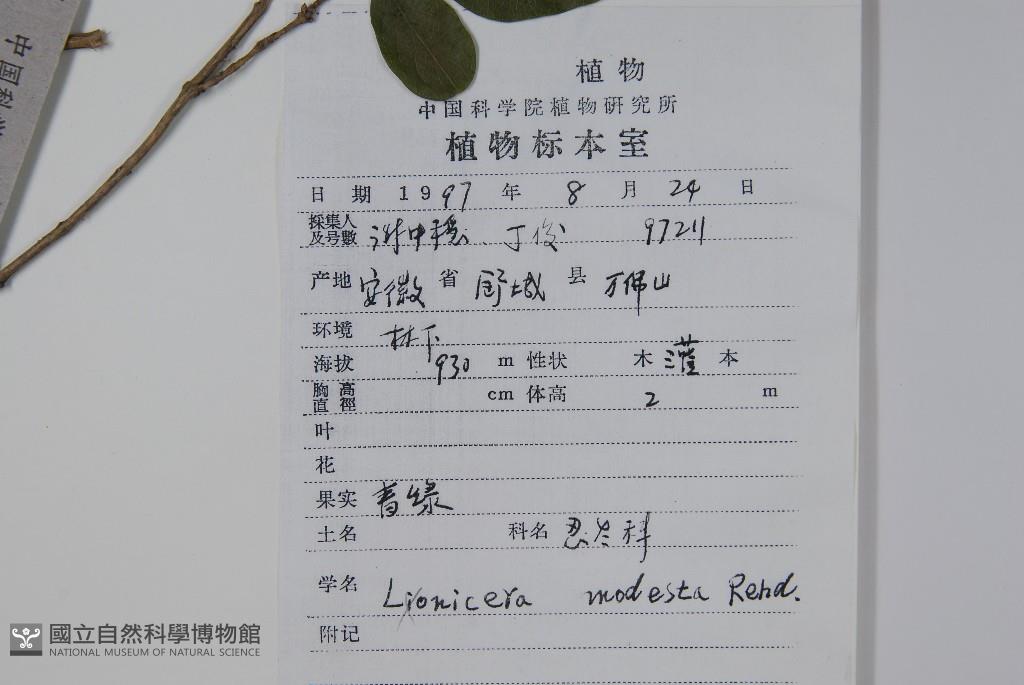 中国科
植物
中国科学院植物研究所
植物标本室
日期 1997 年 8 月 24 日
採集人及号數 谢中稳、丁俊 97211
产地 安徽 省 舒城 县 万佛山
环境 林下
海拔 930 m 性状 木 灌 本
胸高直徑 cm 体高 2 m
叶
花
果实 青绿
土名 科名 忍冬科
学名 Lonicera modesta Rehd.
附记
國立自然科學博物館
NATIONAL MUSEUM OF NATURAL SCIENCE